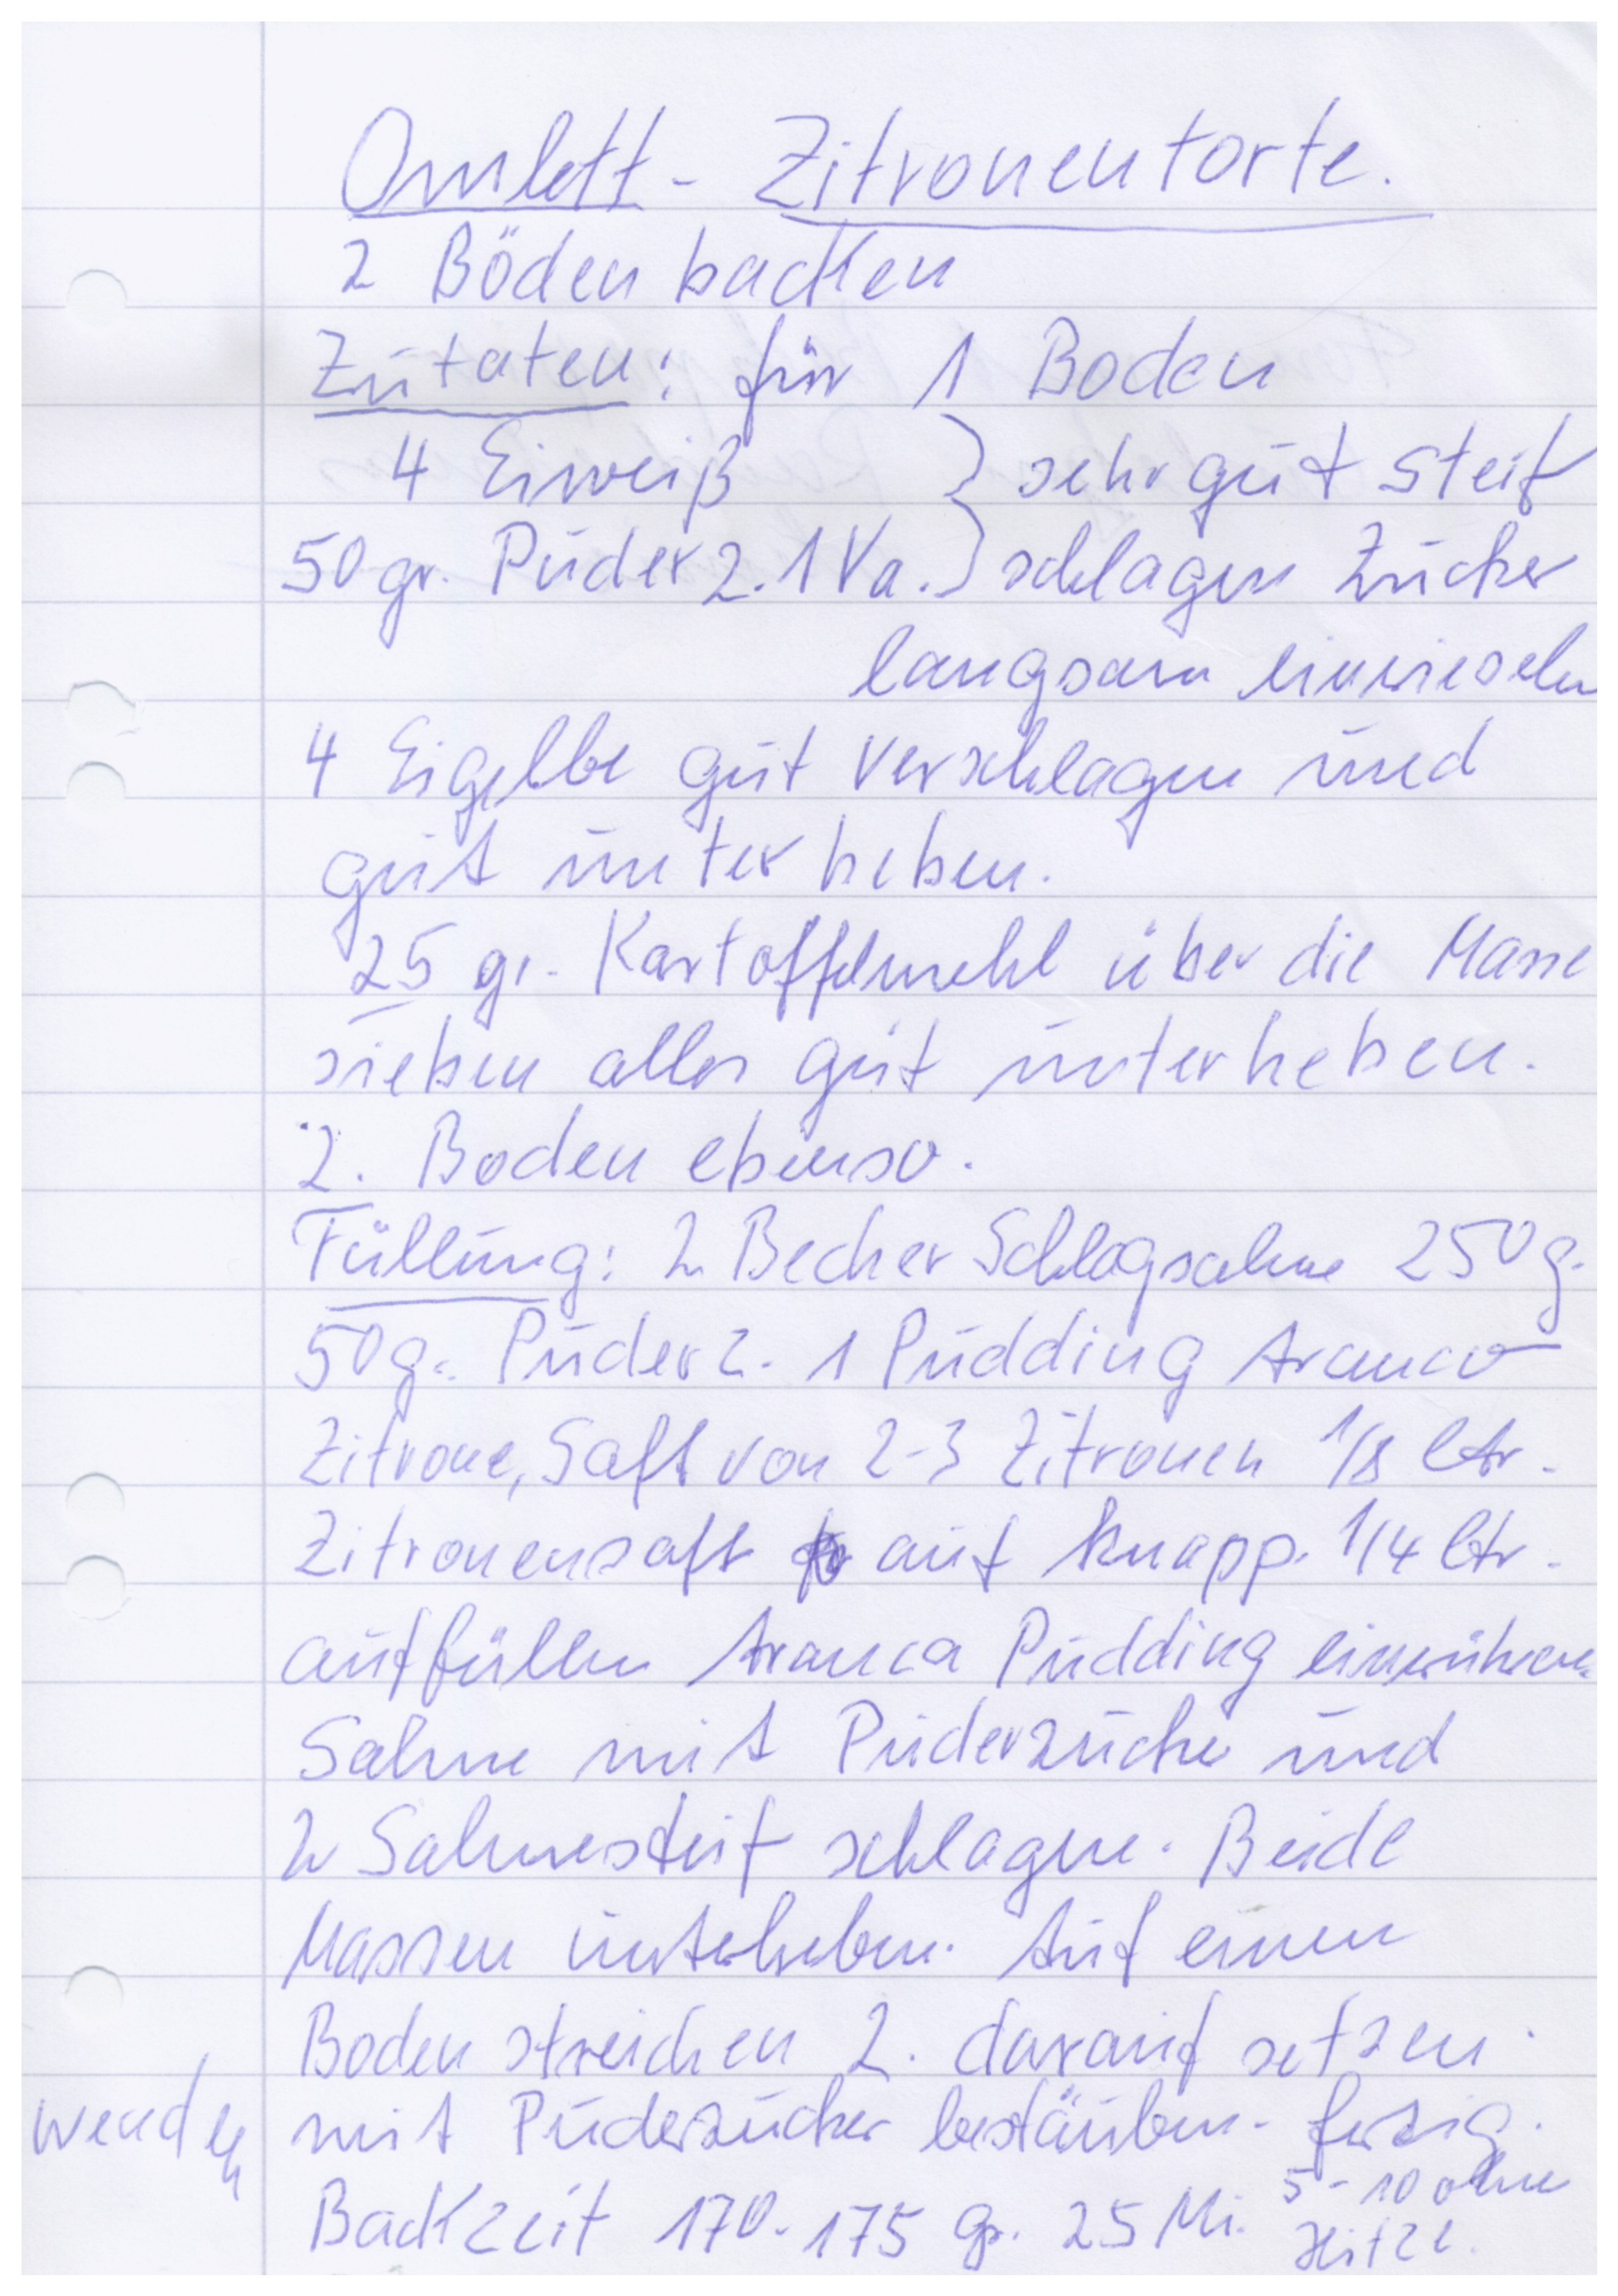 Omlett - Zitronentorte.
2 Böden backen
Zutaten: für 1 Boden
4 Eiweiß } sehr gut steif
50 gr. Puder z. 1 Va. } schlagen Zucker
langsam einrieseln
4 Eigelbe gut verschlagen und
gut unterheben.
25 gr. Kartoffelmehl über die Masse
sieben alles gut unterheben.
2. Boden ebenso.
Füllung: 2 Becher Schlagsahne 250 g.
50 g. Puderz. 1 Pudding Aranca
Zitrone, Saft von 2-3 Zitronen 1/8 ltr.
Zitronensaft auf knapp. 1/4 ltr.
auffüllen Aranca Pudding einrühren
Sahne mit Puderzucker und
2 Sahnesteif schlagen. Beide
Massen unterheben. Auf einen
Boden streichen 2. darauf setzen.
mit Puderzucker bestäuben. fertig.
wenden
Backzeit 170-175 gr. 25 Mi. 5-10 ohne
Hitze.